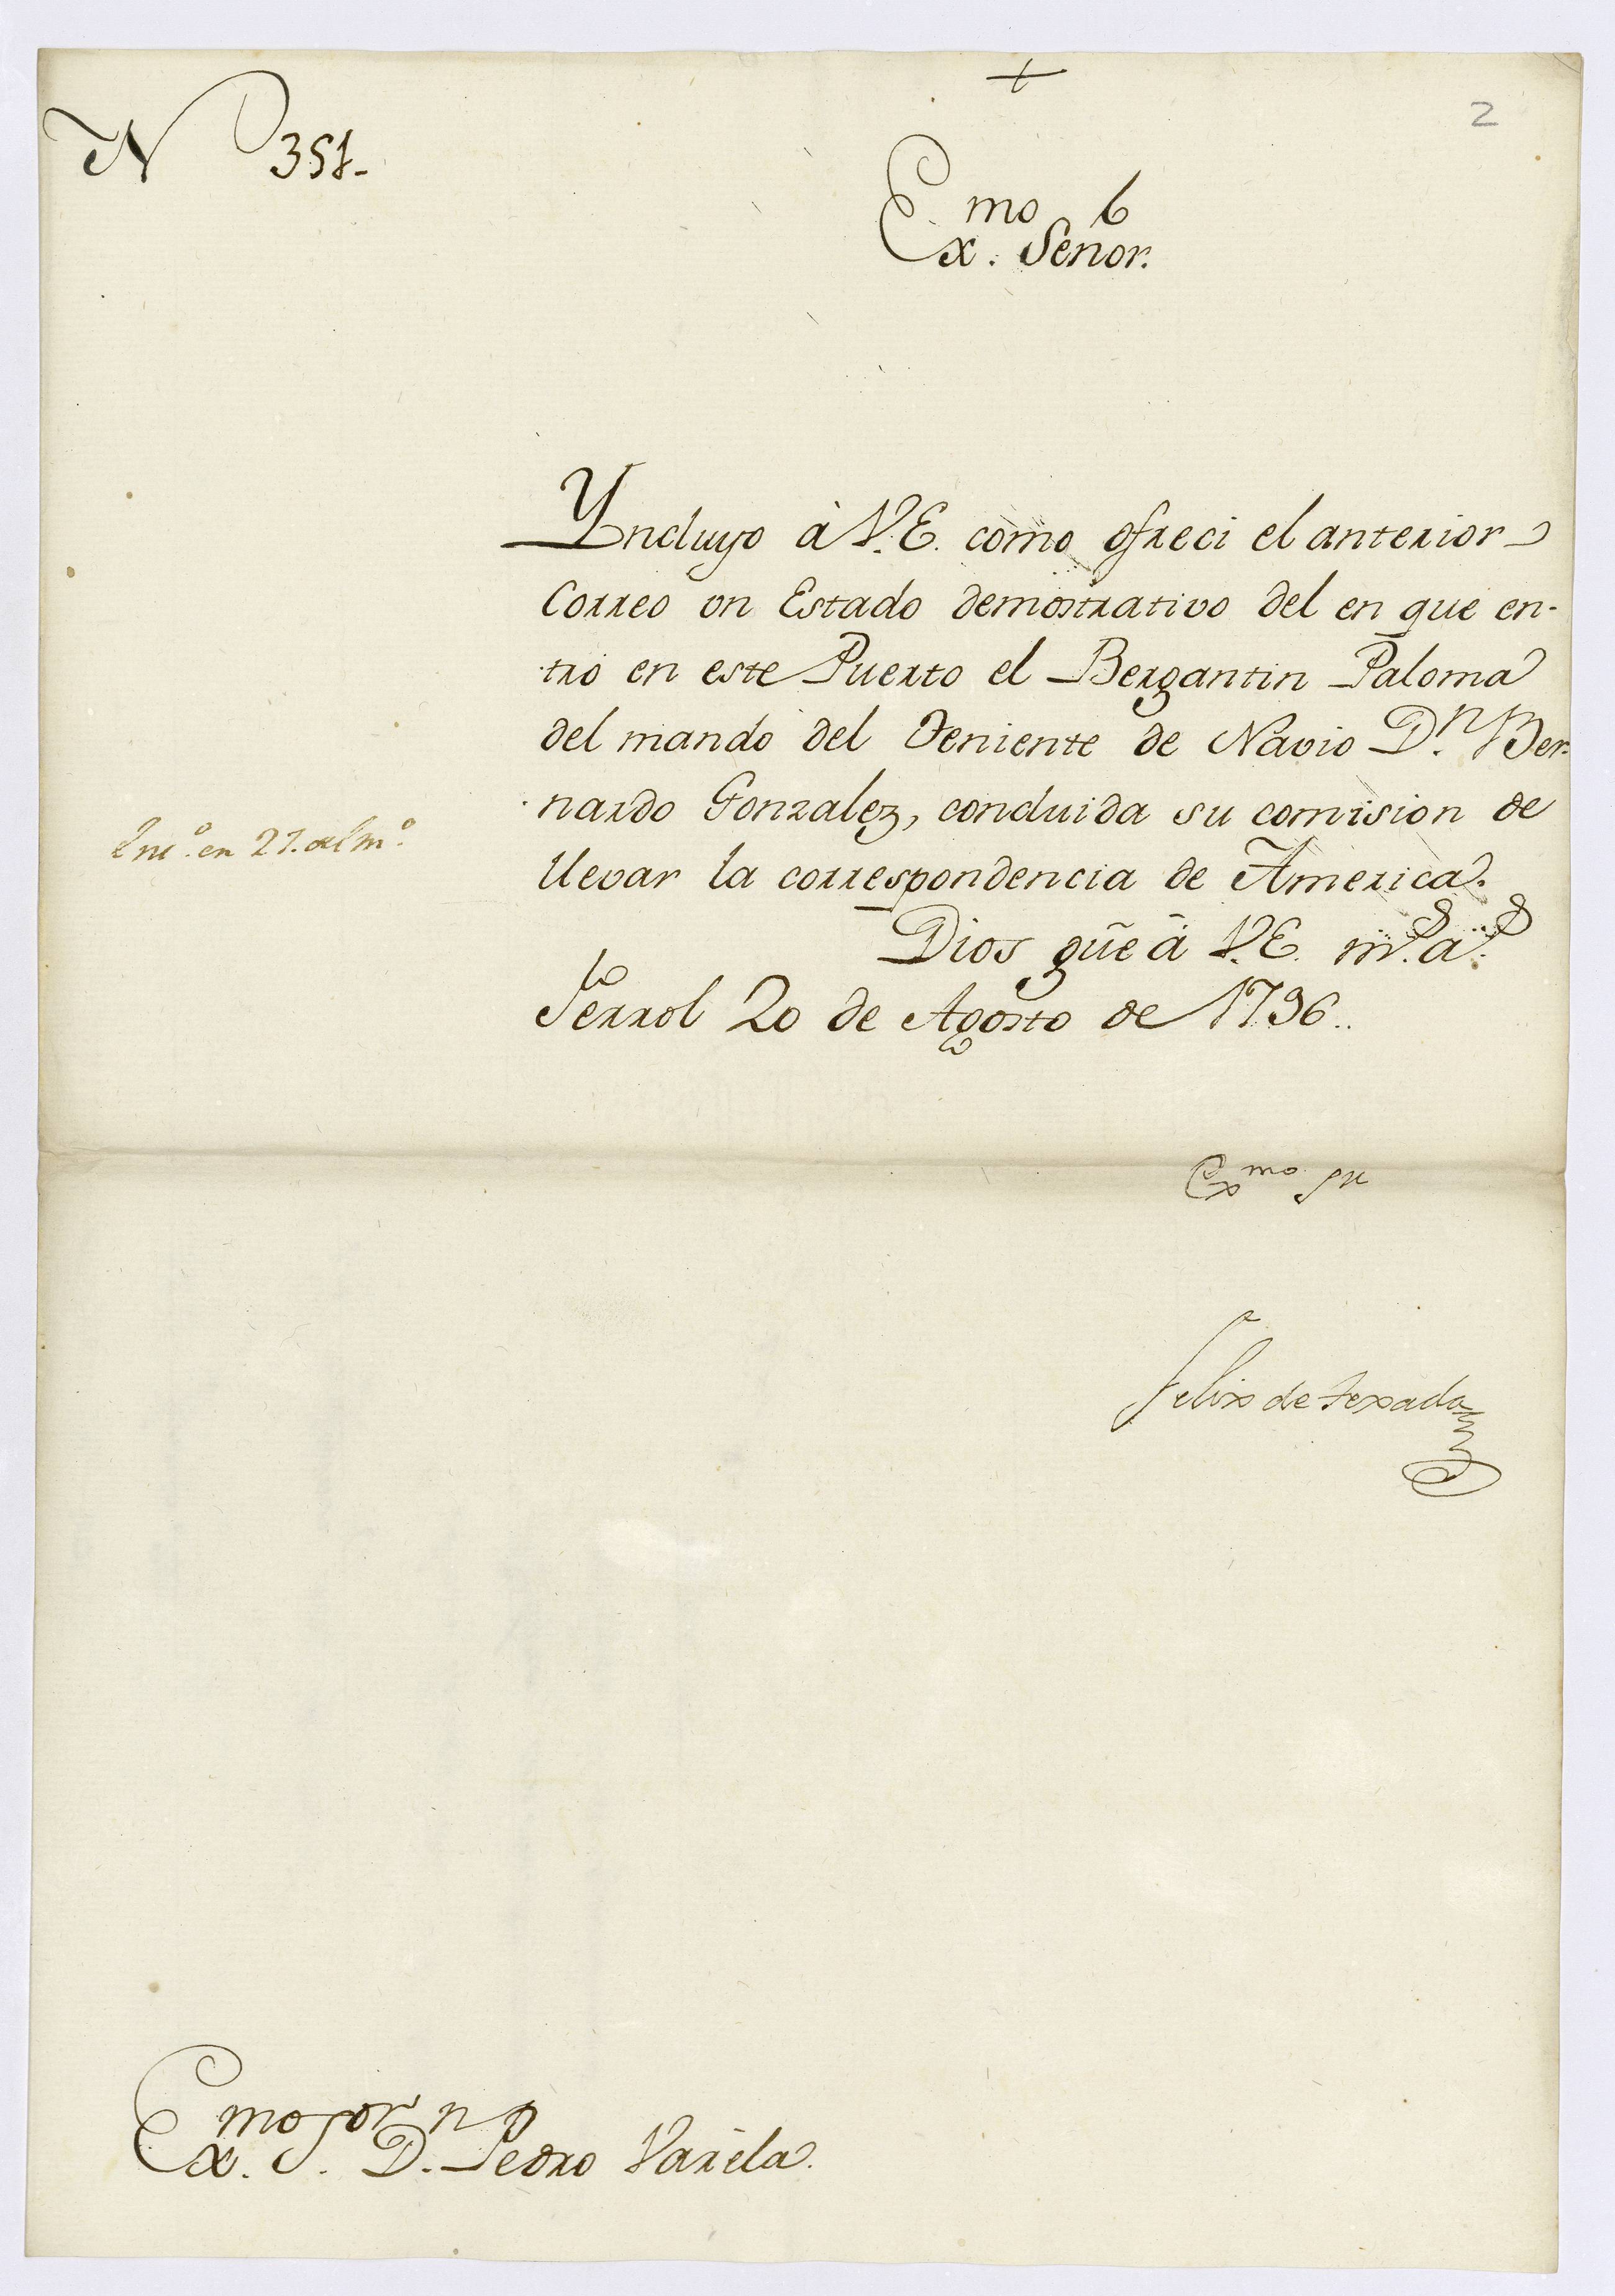 +
2
N 351.
Ex.mo Señor.
Yncluyo à V.E. como ofreci el anterior
Correo un Estado demostrativo del en que en-
tró en este Puerto el Bergantin Paloma
del mando del Teniente de Navio D.n Ber-
nardo Gonzalez, concluida su comision de
llevar la correspondencia de America.
Dios gũe à V.E. m.s a.s
Ferrol 20 de Agosto de 1796..
en 27. del m.o
Exmo Sr
Felix de Texada
Ex.mo S.or D.n Pedro Varela.